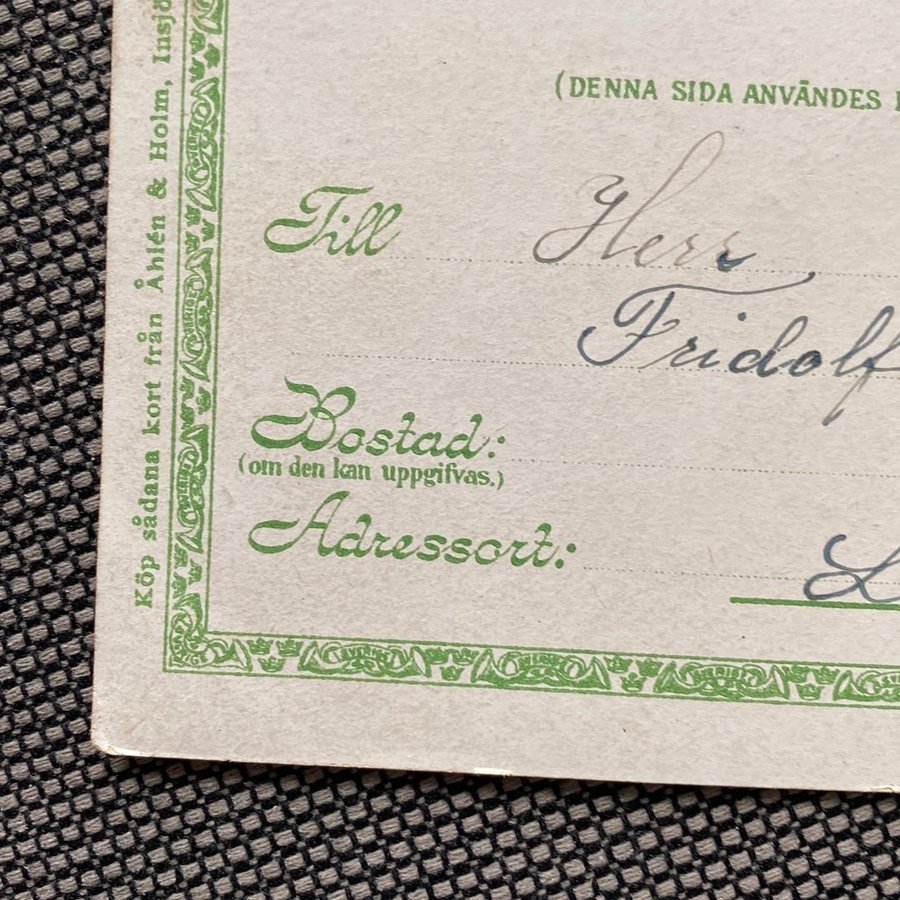 Köp sådana kort från Åhlén & Holm, Insjö
(DENNA SIDA ANVÄNDES
Till Herr
Fridolf
Bostad:
(om den kan uppgifvas.)
Adressort: